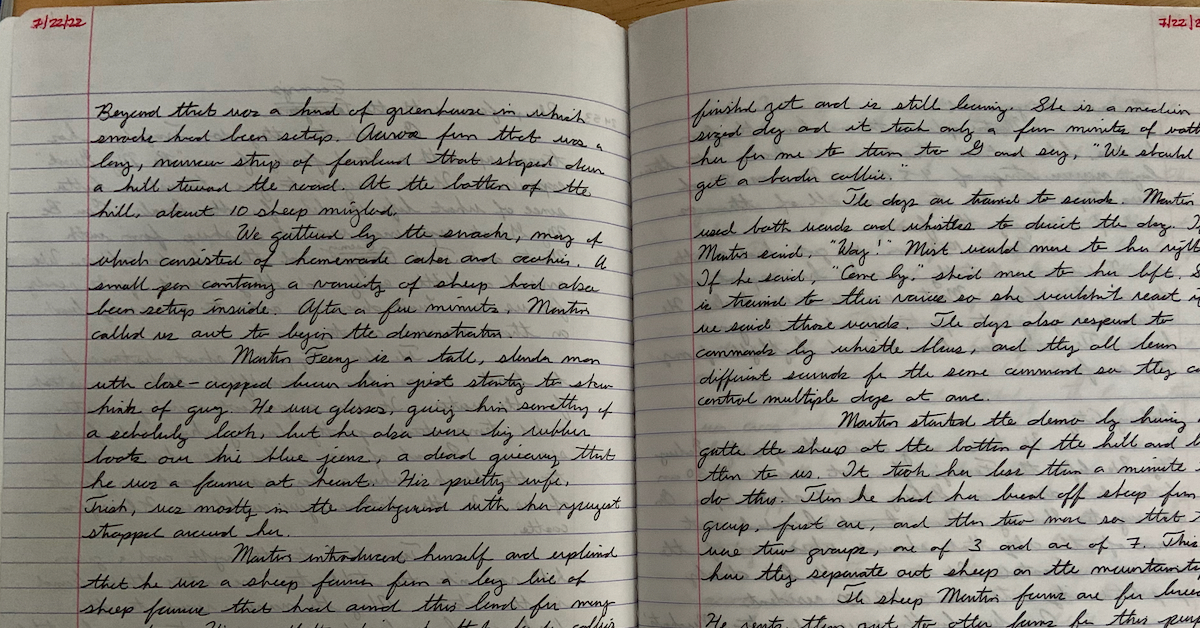 7/22/22
Beyond that was a kind of greenhouse in which
snacks had been setup. Across from that was a
long, narrow strip of farmland that sloped down
a hill toward the road. At the bottom of the
hill, about 10 sheep mingled.
We gathered by the snacks, many of
which consisted of homemade cakes and cookies. A
small pen containing a variety of sheep had also
been setup inside. After a few minutes, Martin
called us out to begin the demonstration.
Martin Feeny is a tall, slender man
with close-cropped brown hair just starting to show
hints of gray. He wore glasses, giving him something of
a scholarly look, but he also wore big rubber
boots over his blue jeans, a dead giveaway that
he was a farmer at heart. His pretty wife,
Trish, was mostly in the background with her youngest
strapped around her.
Martin introduced himself and explained
that he was a sheep farmer from a long line of
sheep farmers that had owned this land for many
7/22/2
finished yet and is still learning. She is a medium
sized dog and it took only a few minutes of
her for me to turn to G and say, "We should
get a border collie."
The dogs are trained to sounds. Martin
used both words and whistles to direct the dog. If
Martin said, "Way!" Mist would move to her right
If he said, "Come by," she'd move to her left. S
is trained to their voices so she wouldn't react i
we said those words. The dogs also respond to
commands by whistle blows, and they all learn
different sounds for the same command so they c
control multiple dogs at once.
Martin started the demo by having
gather the sheep at the bottom of the hill and b
them to us. It took her less than a minute
do this. Then he had her break off sheep from
group, first one, and then two more so that t
were two groups, one of 3 and one of 7. This
how they separate out sheep on the mountainside
The sheep Martin farms are for
He rents them out to other farms for this